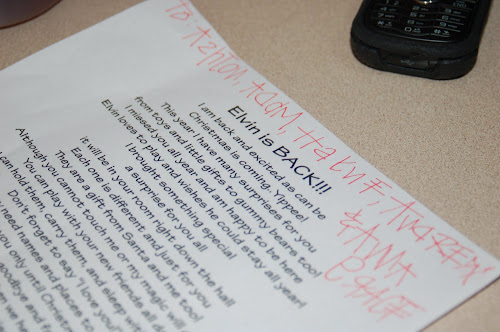 To Ashton, Adam,
&
Elvin is BACK!!!
I am back and excited as can be
Christmas is coming. Yippee!
This year I have many surprises for you
from toys and little gifts to gummy bears too!
I missed you all year and am happy to be here
Elvin loves to play and wishes he could stay all year!
I brought something special
a surprise for you all
it will be in your room right down the hall
Each one is different and just for you
They are a gift from Santa and me too!
Although you cannot touch me or my magic will
You can play with your new friends all d
can hold them, carry them and sleep wit
Don't forget to say "I love you!"
need names and places to
you only until Christm
goodbye and